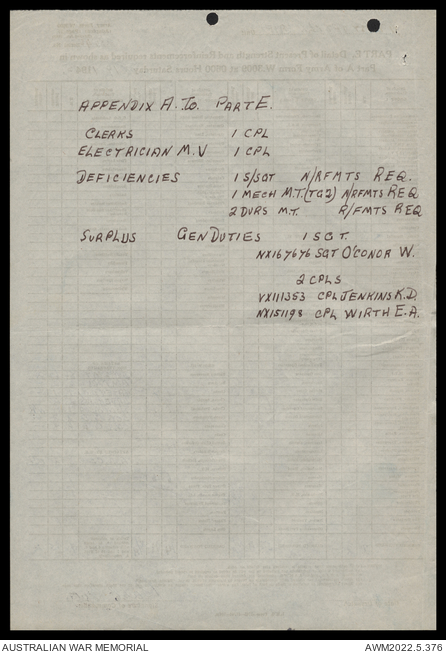 APPENDIX A. To PART E.
CLERKS 1 CPL
ELECTRICIAN M.V 1 CPL
DEFICIENCIES 1 S/SGT N/RFMTS REQ.
1 MECH M.T.(TG2) N/RFMTS REQ
2 DVRS M.T. R/FMTS REQ
SURPLUS GEN DUTIES 1 SGT.
NX167676 SGT O'CONOR W.
2 CPLS
VX111353 CPL JENKINS K.D.
NX151198 CPL WIRTH E.A.
AUSTRALIAN WAR MEMORIAL AWM2022.5.376